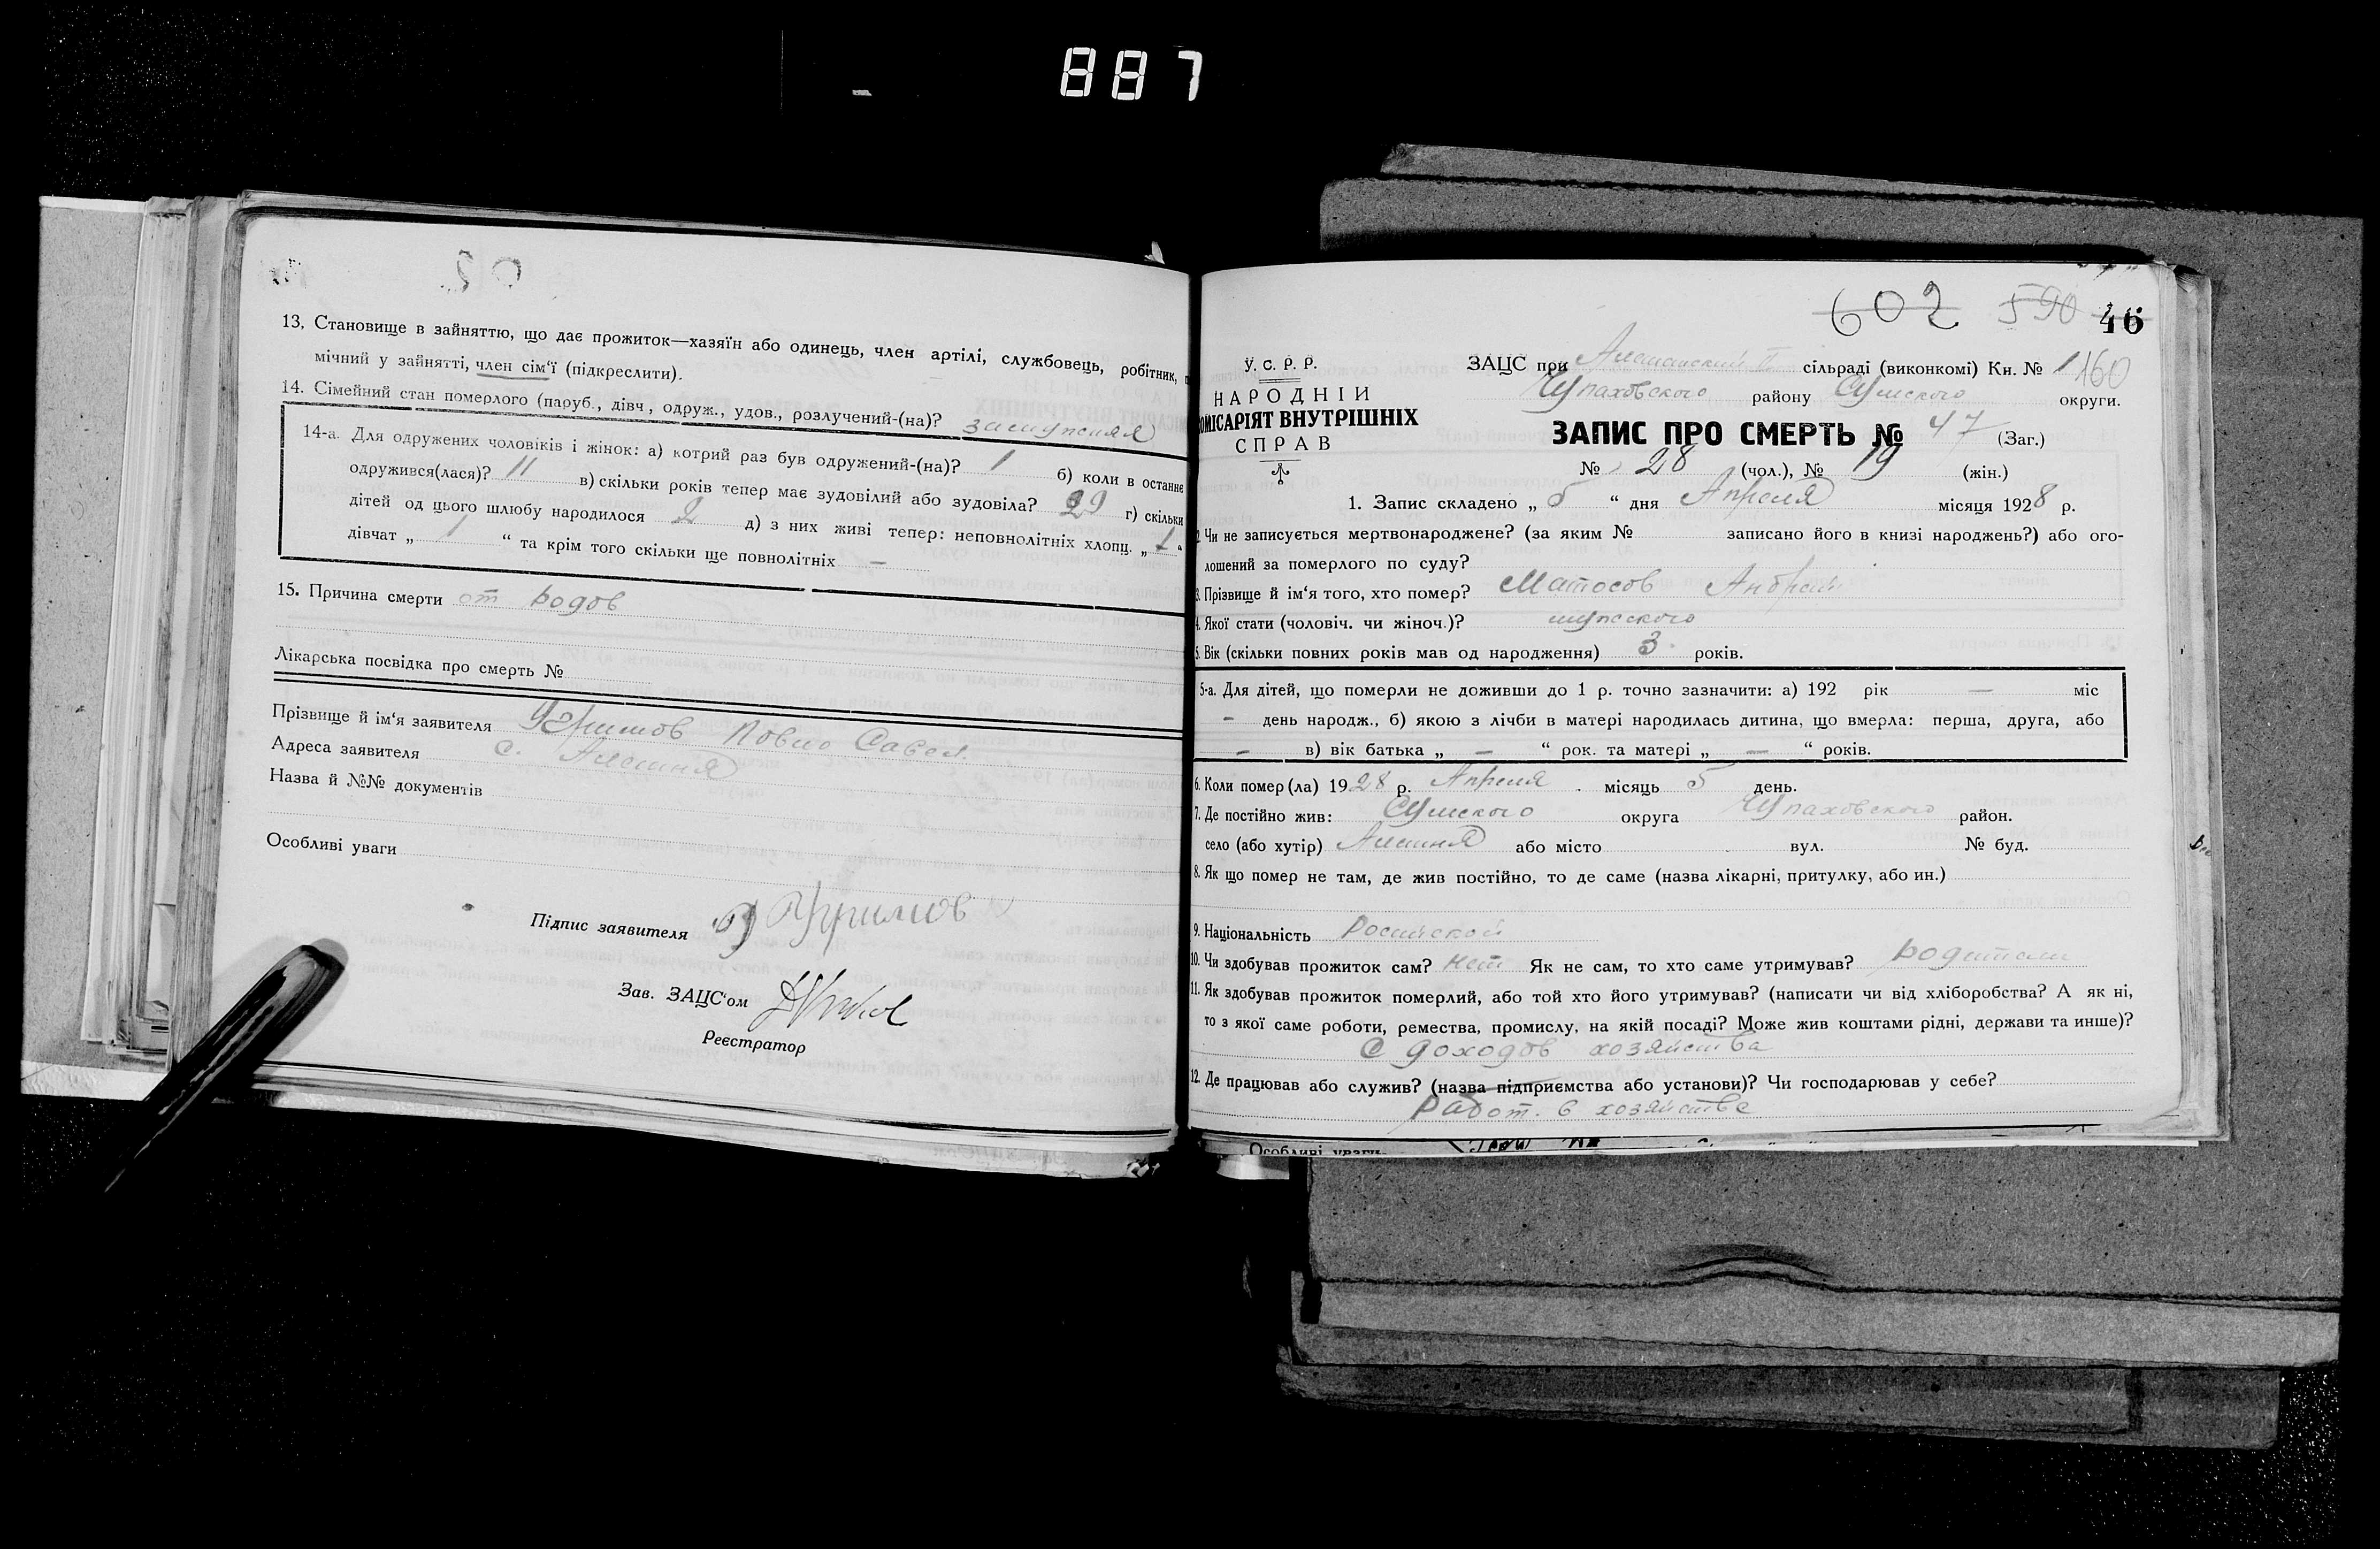 887
13. Становище в зайняттю, що дає прожиток—хазяїн або одинець, член артілі, службовець, робітник,
мічний у зайнятті, член сім'ї (підкреслити).
14. Сімейний стан померлого (паруб., дівч, одруж., удов., розлучений-(на)? замужняя
14-а. Для одружених чоловіків і жінок: а) котрий раз був одружений-(на)? 1 б) коли в останнє
одружився(лася)? 11 в) скільки років тепер має зудовілий або зудовіла? 29 г) скільки
дітей од цього шлюбу народилося 2 д) з них живі тепер: неповнолітніх хлопц. „ 1 “
дівчат „ 1 “ та крім того скільки ще повнолітніх —
15. Причина смерти от родов
Лікарська посвідка про смерть №
Прізвище й ім'я заявителя Савел.
Адреса заявителя с. Алешня
Назва й №№ документів
Особливі уваги
Підпис заявителя
Зав. ЗАЦС'ом
Реєстратор
602 590 46
У. С. Р. Р.
НАРОДНІЙ
ОМІСАРІЯТ ВНУТРІШНІХ
СПРАВ
ЗАЦС при сільраді (виконкомі) Кн. № 1 160
Чупаховского району Сумского округи.
ЗАПИС ПРО СМЕРТЬ № 47 (Заг.)
№ 28 (чол.), № 19 (жін.)
1. Запис складено „ 5 “ дня Апреля місяця 1928 р.
2. Чи не записується мертвонароджене? (за яким № записано його в книзі народжень?) або ого-
лошений за померлого по суду?
3. Прізвище й ім'я того, хто помер? Матосов Андрей
4. Якої стати (чоловіч. чи жіноч.)? мужского
5. Вік (скільки повних років мав од народження) 3 років.
5-а. Для дітей, що померли не доживши до 1 р. точно зазначити: а) 192 рік — міс
— день народж., б) якою з лічби в матері народилась дитина, що вмерла: перша, друга, або
— в) вік батька „ — “ рок. та матері „ — “ років.
6. Коли помер(ла) 1928 р. Апреля місяць 5 день.
7. Де постійно жив: Сумского округа Чупаховского район.
село (або хутір) Алешня або місто вул. № буд.
8. Як що помер не там, де жив постійно, то де саме (назва лікарні, притулку, або ин.)
9. Національність Российской
10. Чи здобував прожиток сам? нет Як не сам, то хто саме утримував? родители
11. Як здобував прожиток померлий, або той хто його утримував? (написати чи від хліборобства? А як ні,
то з якої саме роботи, ремества, промислу, на якій посаді? Може жив коштами рідні, держави та инше)?
С доходов хозяйства
12. Де працював або служив? (назва підприємства або установи)? Чи господарював у себе?
Работ. в хозяйстве
Особливі уваги